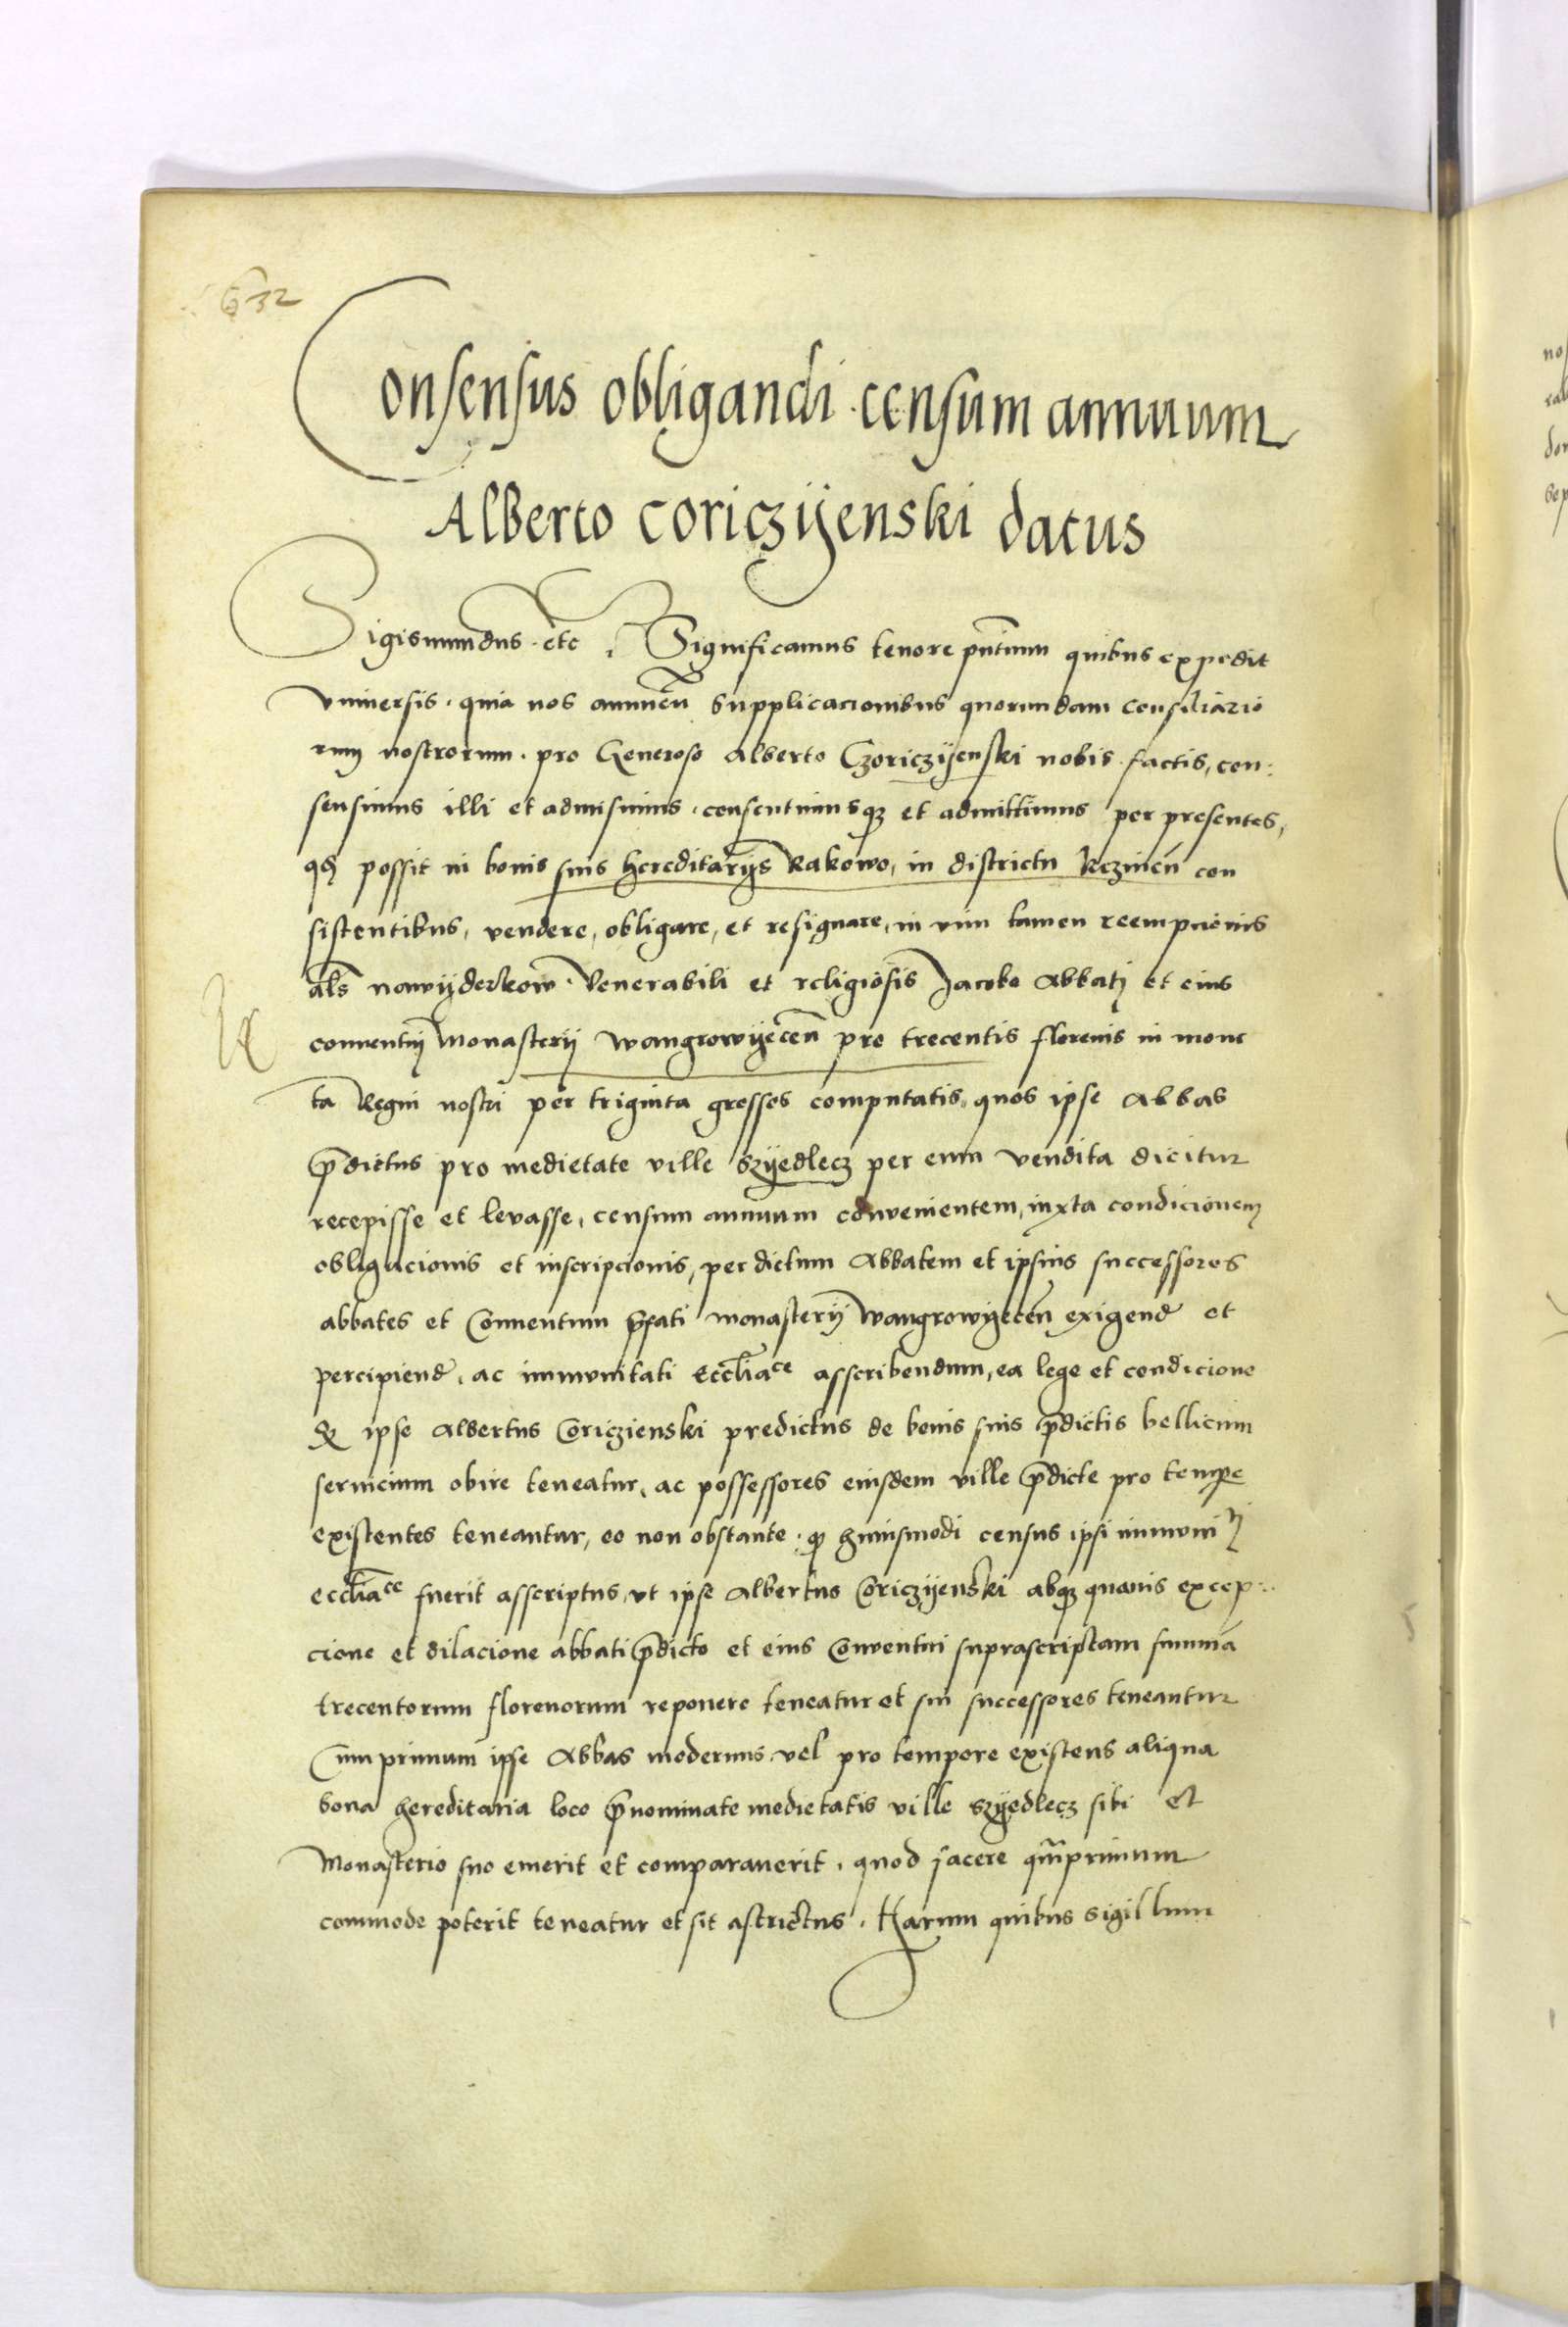 632
Consensus obligandi censum annuum
Alberto coriczijenski datus
Sigismundus etc. Significamus tenore pñtium quibus expedit
vniuersis. quia nos annueñ supplicacionibus quorundam consiliario
rum nostrorum. pro Generoso Alberto Czoriczijenski nobis factis, con:
sensimus illi et admisimus. consentimusqȝ et admittimus per presentes,
qđ possit in bonis suis hereditarijs Rakowo, in districtu Kcziniēn con
sistentibus, vendere, obligare, et resignare, in vim tamen reempcionis
als̄ nawijderkow. Venerabili et religiosis Jacobo Abbati et eius
conuentui Monasterij Wangrowijeceñ pro trecentis florenis in mone
ta Regni nostri per triginta grossos computatis, quos ipse Abbas
p̄dictus pro medietate ville Szijedlecz per eum vendita dicitur
recepisse et levasse, censum annuum convenientem, iuxta condicionem
obligacionis et inscripcionis, per dictum Abbatem et ipsius successores
abbates et Conuentum p̄fati monasterij Wangrowijeceñ exigend et
percipiend, ac immunitati Eccliāce asscribendum, ea lege et condicione
qȝ ipse Albertus Coriczienski predictus de bonis suis p̄dictis bellicum
seruicium obire teneatur, ac possessores eiusdem ville p̄dicte pro tempe
existentes teneantur, eo non obstante. qȝ huiusmodi census ipsi immunitj
eccliāce fuerit asscriptus, vt ipse Albertus Coriczijenski absqȝ quauis excep:
cione et dilacione abbati p̄dicto et eius Conventui suprascriptam summā
trecentorum florenorum reponere teneatur et sui successores teneantur
Cum primum ipse Abbas modernus vel pro tempore existens aliqua
bona hereditaria loco p̄nominate medietatis ville Szijedlecz sibi et
Monasterio suo emerit et comparauerit, quod facere qm̄primum
commode poterit teneatur et sit astrictus. Harum quibus sigillum